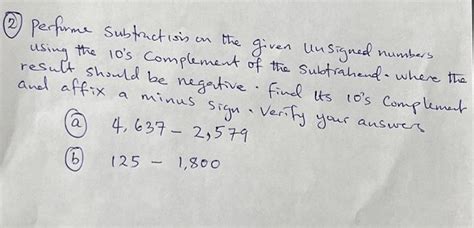 ② Performe Subtraction on the given Unsigned numbers
using the 10's Complement of the Subtrahend. where the
result should be negative. find Its 10's Complement
and affix a minus sign. Verify your answers
ⓐ 4,637 - 2,579
ⓑ 125 - 1,800